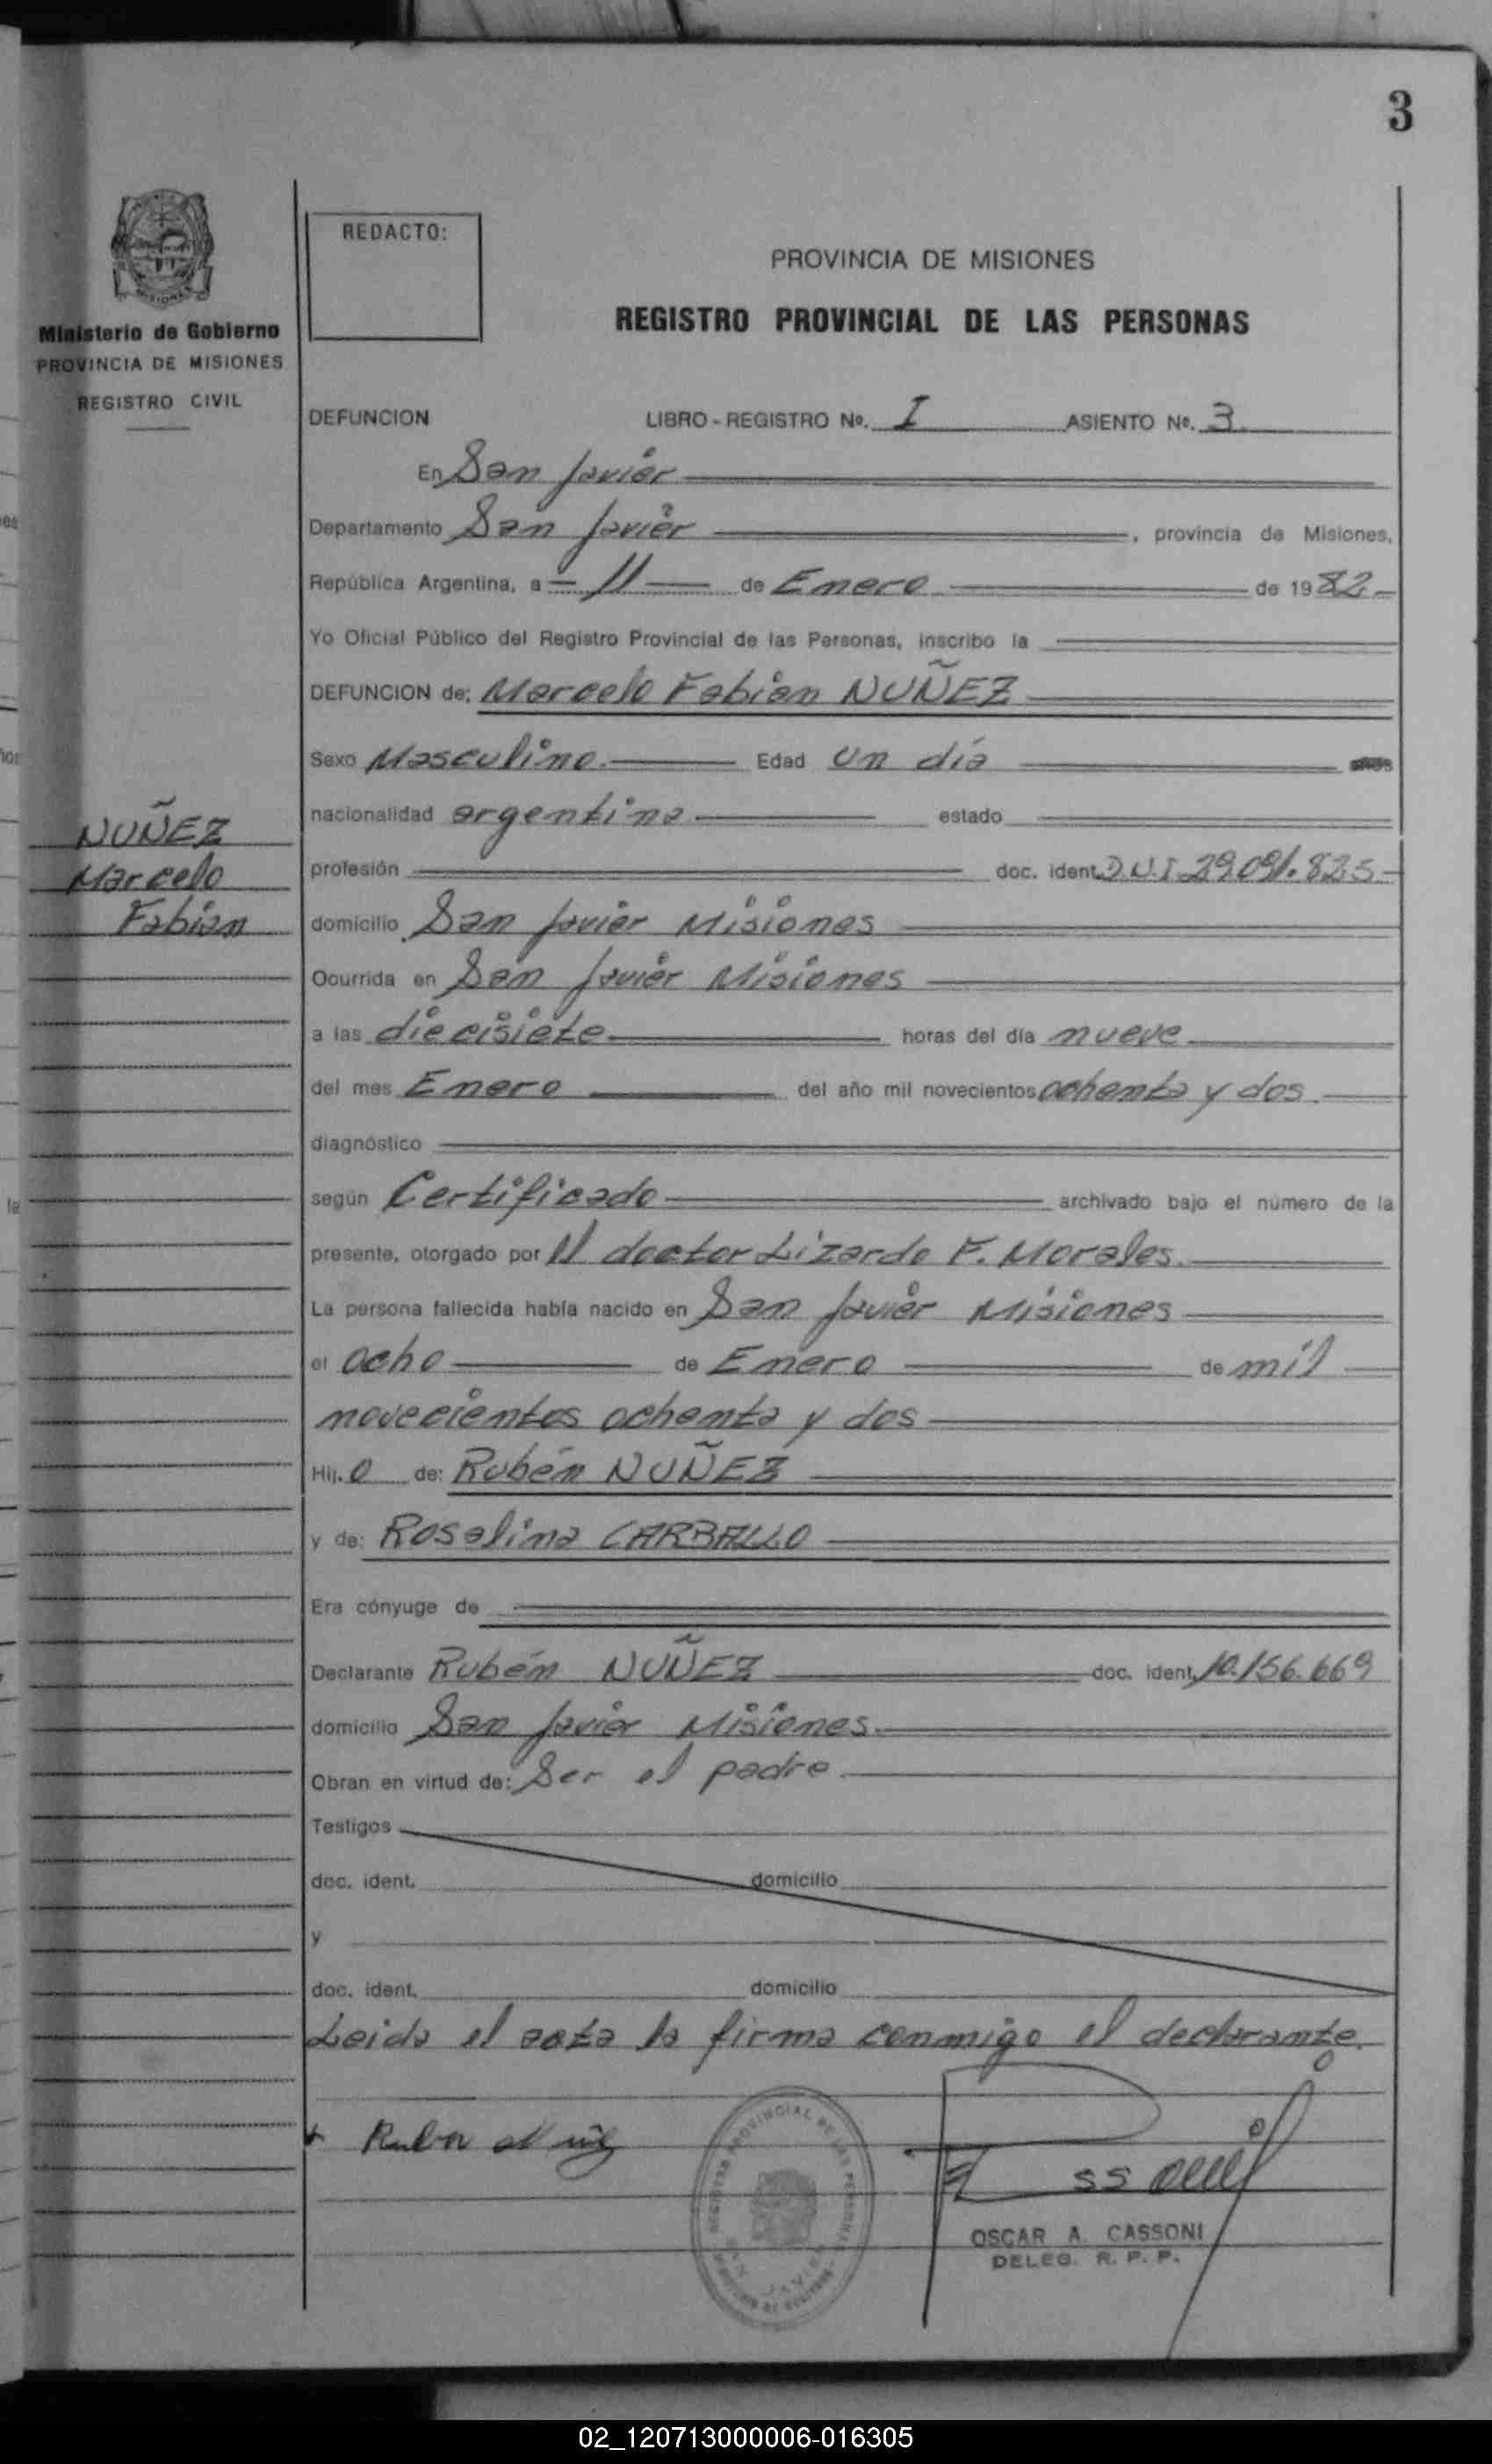 3
MISIONES
Ministerio de Gobierno
PROVINCIA DE MISIONES
REGISTRO CIVIL
NUÑEZ
Marcelo
Fabian
REDACTO:
PROVINCIA DE MISIONES
REGISTRO PROVINCIAL DE LAS PERSONAS
DEFUNCION LIBRO - REGISTRO Nº. I ASIENTO Nº. 3
En San Javier
Departamento San Javier, provincia de Misiones,
República Argentina, a 11 de Enero de 1982
Yo Oficial Público del Registro Provincial de las Personas, inscribo la
DEFUNCION de: Marcelo Fabian NUÑEZ
Sexo Masculino. Edad Un día
nacionalidad argentina estado
profesión doc. ident. D.N.I. 29.091.825
domicilio San Javier Misiones
Ocurrida en San Javier Misiones
a las diecisiete horas del día nueve
del mes Enero del año mil novecientos ochenta y dos
diagnóstico
según Certificado archivado bajo el número de la
presente, otorgado por el doctor Lizardo F. Morales.
La persona fallecida había nacido en San Javier Misiones
el ocho de Enero de mil
novecientos ochenta y dos
Hij.o de: Rubén NUÑEZ
y de: Rosalina CARBALLO
Era cónyuge de
Declarante Rubén NUÑEZ doc. ident. 10.156.669
domicilio San Javier Misiones.
Obran en virtud de: Ser el padre
Testigos
doc. ident. domicilio
y
doc. ident. domicilio
Leida el acta la firma conmigo el declarante.
REGISTRO PROVINCIAL DE LAS PERSONAS
SAN JAVIER
OSCAR A. CASSONI
DELEG. R. P. P.
02_120713000006-016305